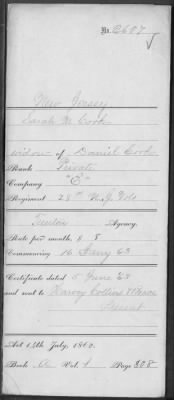 No. 2607
New Jersey
Sarah M. Cook
widow of Daniel Cook
Rank Private
Company "E"
Regiment 28th N.J. Vols
Trenton Agency.
Rate per month, $ 8
Commencing 16 Jany 63
Certificate dated 5 June 63
and sent to Harvey Collins
Present
Act 14th July, 1862.
Book A Vol. 1 Page 308